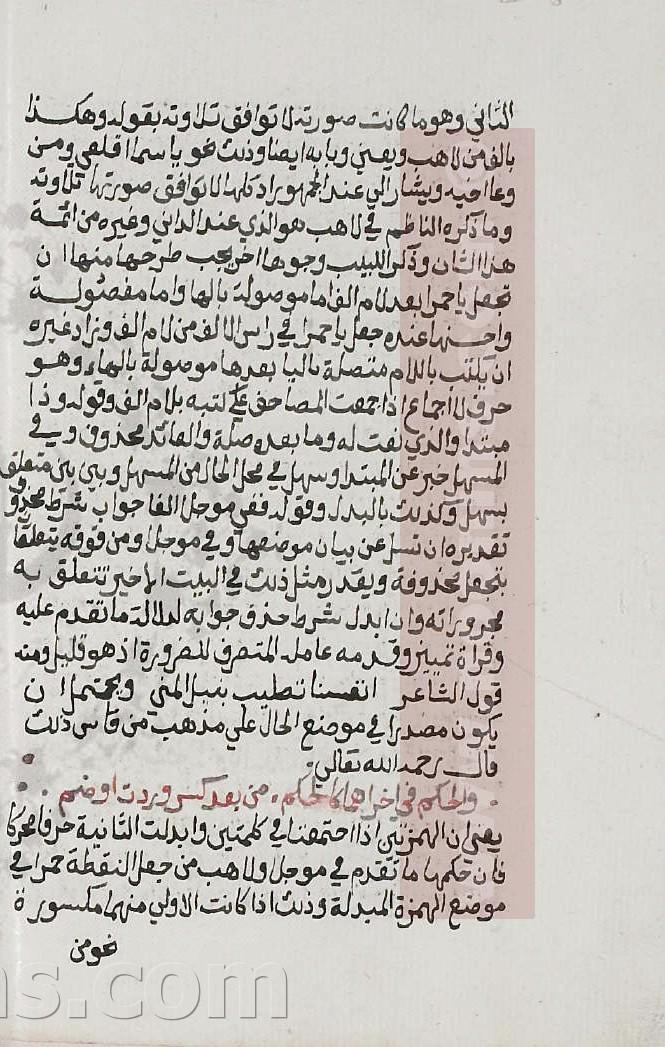 الثاني وهو ما كانت صورته لا توافق تلاوته بقوله وهكذا
بالف من لاهب ويعني وبابه ايضا وذلك نحو يا سما اقلعي ومن
وعا اخيه ويشا الي عند الجمهور اذ كلها لا توافق صورتها تلاوته
وما ذكره الناظم في لاهب هو الذي عند الداني وغيره من ائمة
هذا الشان وذكر اللبيب وجوها اخر يجب طرحها منها ان
تجعل يا حمرا بعد لام الف اما موصولة بالها واما مفصولة
واحسنها عنده جعل يا حمرا في راس الالف من لام الف وزاد غيره
ان يكتب باللام متصلة باليا بعدها موصولة بالهاء وهو
خرق لاجماع اذا جمعت المصاحف علي كتبه بلام الف وقوله وذا
مبتدا والذي نعت له وما بعده صلة والعائد محذوف وفي
المسهل خبر عن المبتدا وسهل في محل الحال من المسهل وبين بين متعلق
بسهل وكذلك بالبدل وقوله ففي موجل الفا جواب شرط محذوف
تقديره ان تسل عن بيان موضعها وفي موجل ومن فوقه يتعلقا
بتجعل محذوفة ويقدر مثل ذلك في البيت الاخير تتعلق به
مجروراته وان ابدل شرط حذف جوابه لدلالة ما تقدم عليه
وقراة تمييز وقدمه عامله المتصرف للضرورة اذ هو قليل ومنه
قول الشاعر انفسنا تطيب بنيل المني ويحتمل ان
يكون مصدرا في موضع الحال علي مذهب من قاس ذلك
قال رحمه الله تعالي
والحكم في اخراهما كالحكم من بعد كسر وردت او ضم
يعني ان الهمزتين اذا اجتمعتا في كلمتين وابدلت الثانية حرفا محركا
فان حكمها ما تقدم في موجل ولاهب من جعل النقطة حمرا في
موضع الهمزة المبدلة وذلك اذا كانت الاولي منهما مكسورة
نحو من
ms.com